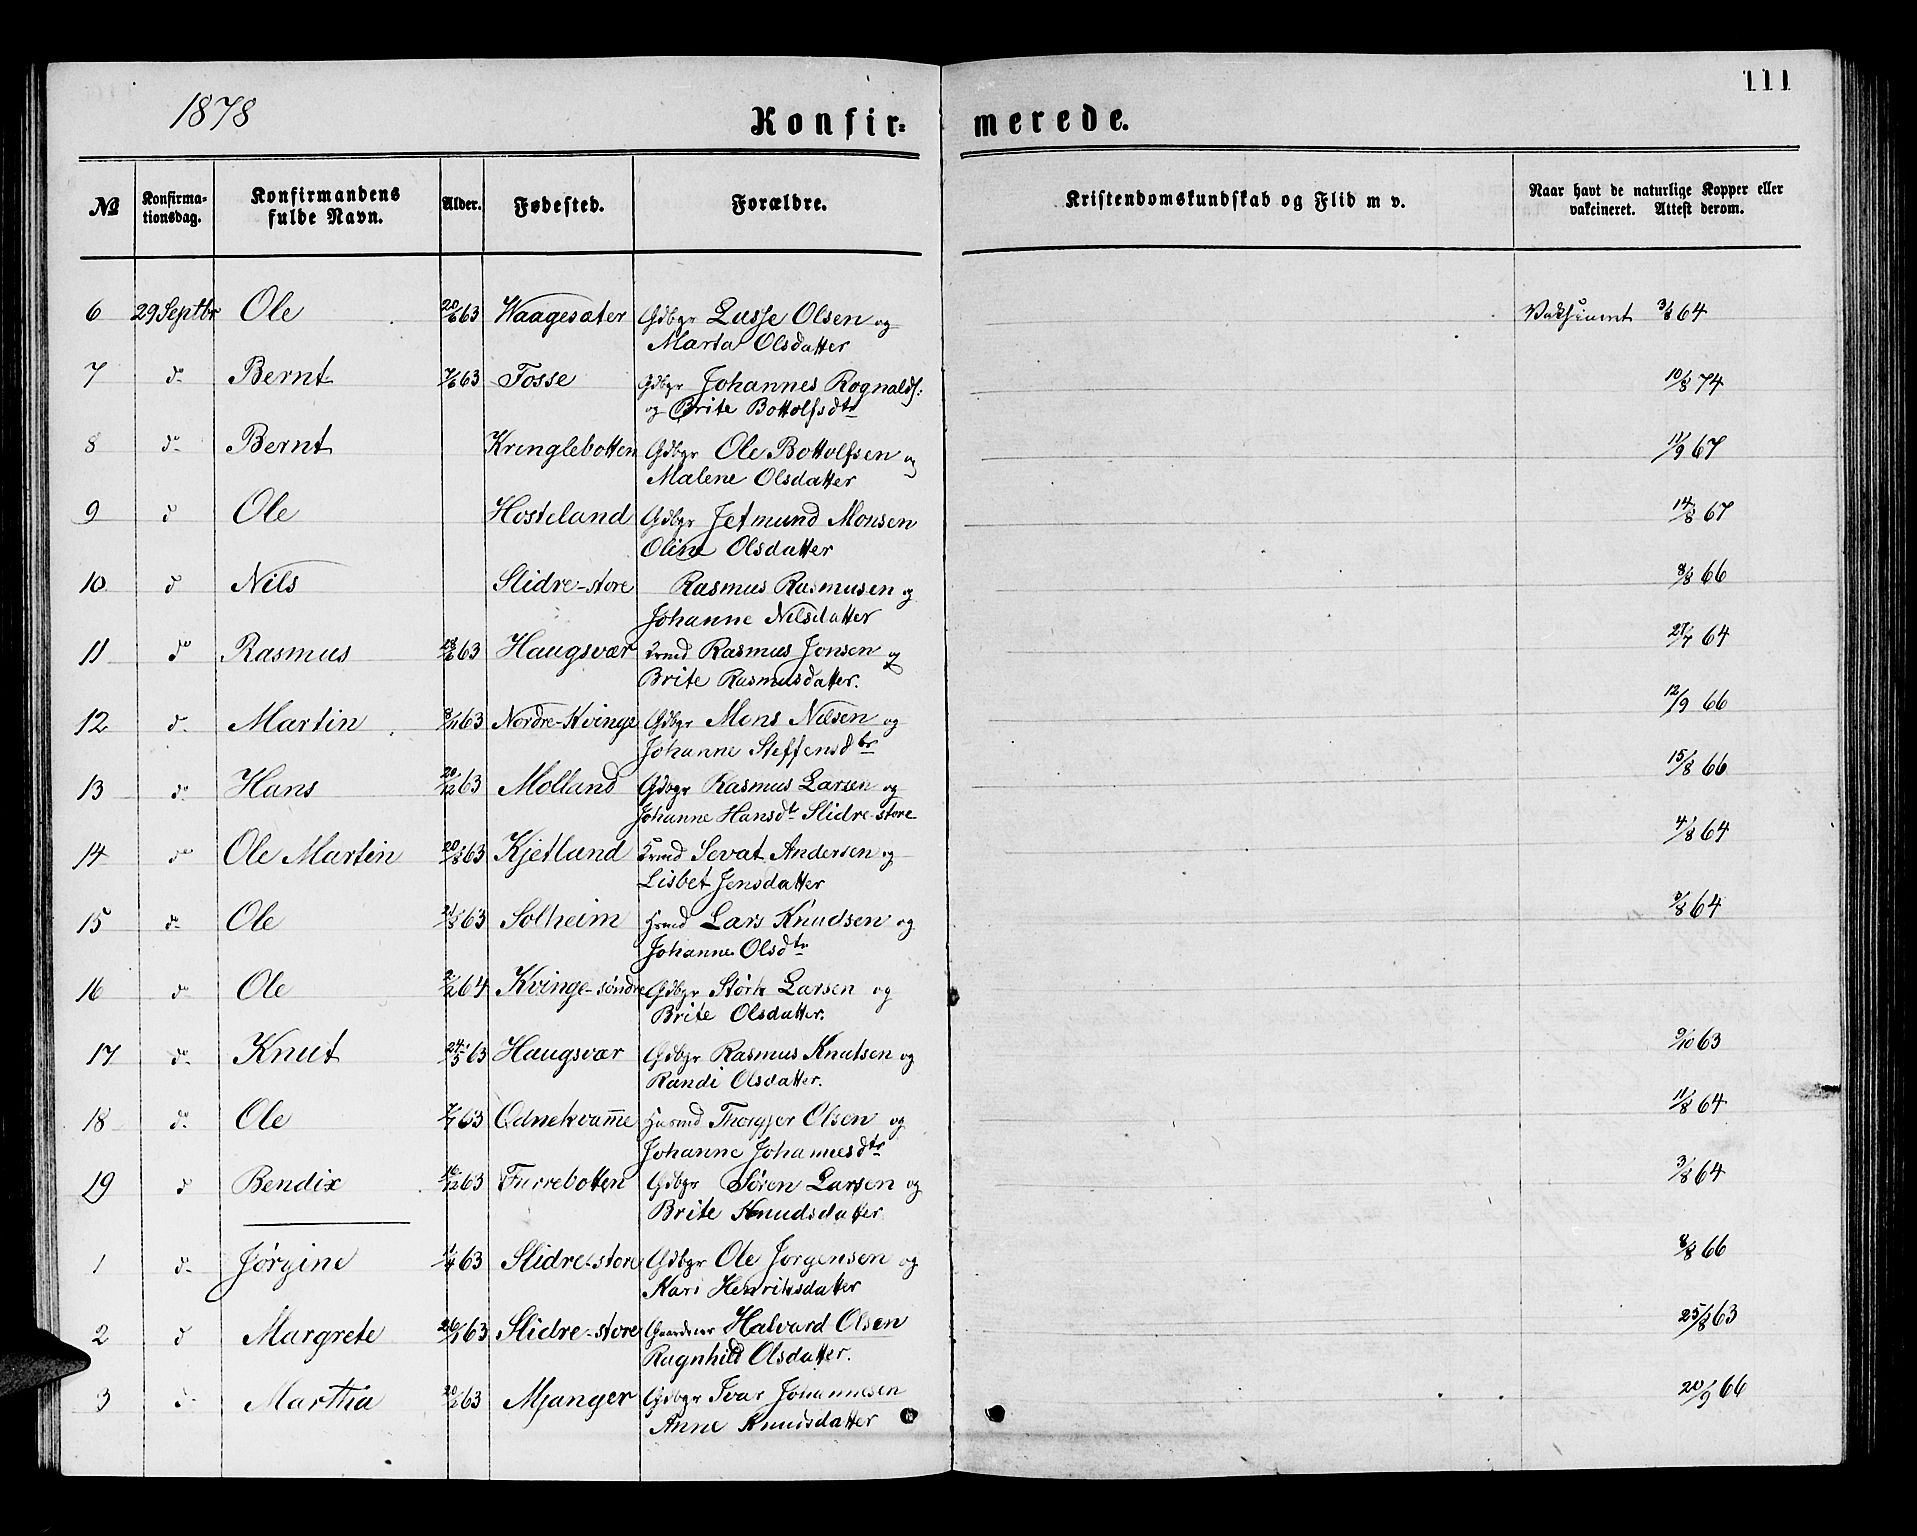 1878
Konfir= merede.
111
No Konfirma-tionsdag. Konfirmandens fulde Navn. Alder. Fødested. Forældre. Kristendomskundskab og Flid m v. Naar havt de naturlige Kopper eller vakcineret. Attest derom.
6 29 Septbr Ole 20/6 63 Waagesæter Gdbgr Lusse Olsen og 3/8 64
Marta Olsdatter
7 do Bernt 63 Fosse Gdbgr Johannes Rognalds: 10/8 74
og Brite Bottolfsdtr
8 do Bernt Krenglebotten Gdbgr Ole Bottolfsen og 11/9 67
Malene Olsdatter
9 d Ole Hosteland Gdbgr Jetmund Monsen 14/8 67
Oline Olsdatter
10 d Nils Slidre-store Rasmus Rasmusen og 8/8 66
Johanne Nilsdatter
11 do Rasmus 63 Haugsvær Rasmus Jonsen og 27/7 64
Brite Rasmusdatter.
12 do Martin 63 Nordre-Kvinge Gdbgr Mons Nilsen og 12/9 66
Johanne Steffensdtr
13 do Hans 20/12 63 Molland Gdbgr Rasmus Larsen og 15/8 66
Johanne Hansdtr Slidre-store
14 do Ole Martin 20/8 63 Kjetland Sevat Andersen og 4/8 64
Lisbet Jensdatter
15 do Ole 63 Solheim Husmd Lars Knudsen og 64
Johanne Olsdtr
16 do Ole 64 Kvinge-søndre Gdbgr Størk Larsen og
Brite Olsdatter.
17 do Knut 24/5 63 Haugsvær Gdbgr Rasmus Knutsen og 9/10 63
Randi Olsdatter.
18 do Ole 63 Odnekvamme Husmd Thorgjer Olsen og 11/8 64
Johanne Johannesdtr
19 d Bendix 16/12 63 Furrebotten Gdbgr Søren Larsen og 3/8 64
Brite Knudsdatter
1 do Jørgine 63 Slidre-store Gdbgr Ole Jørgensen og 8/8 66
Kari Henriksdatter
2 d Margrete 63 Slidre-store Halvard Olsen 25/8 63
Ragnhild Olsdatter.
3 d Martha 63 Mjanger Gdbgr Ivar Johannesen 20/9 66
Anne Knudsdatter